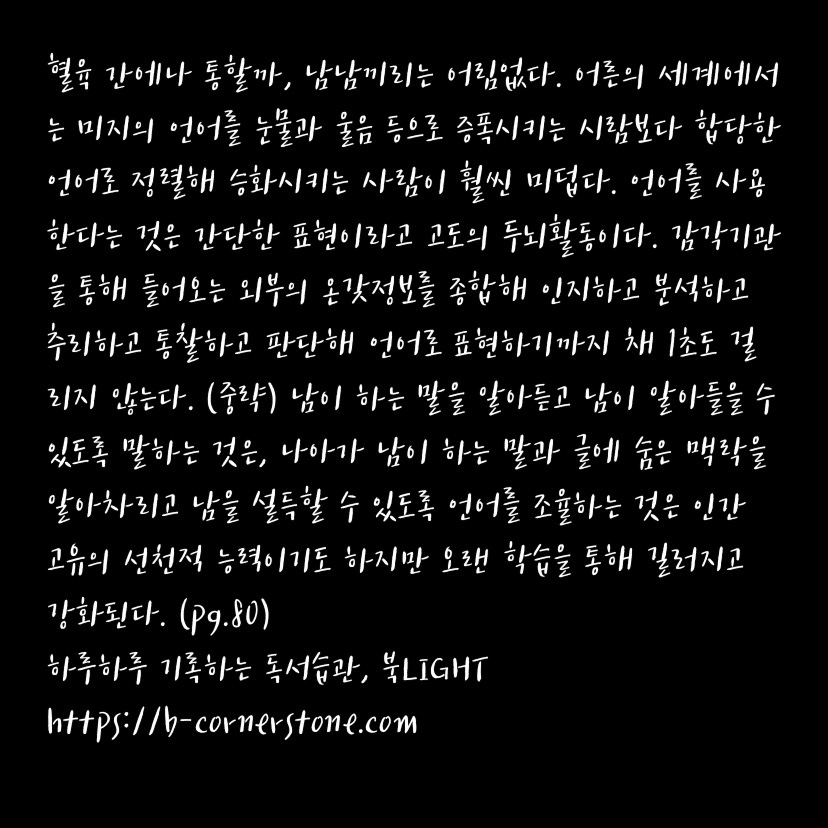 혈육 간에나 통할까, 남남끼리는 어림없다. 어른의 세계에서
는 미지의 언어를 눈물과 울음 등으로 증폭시키는 사람보다 합당한
언어로 정렬해 승화시키는 사람이 훨씬 미덥다. 언어를 사용
한다는 것은 간단한 표현이라고 고도의 두뇌활동이다. 감각기관
을 통해 들어오는 외부의 온갖정보를 종합해 인지하고 분석하고
추리하고 통찰하고 판단해 언어로 표현하기까지 채 1초도 걸
리지 않는다. (중략) 남이 하는 말을 알아듣고 남이 알아들을 수
있도록 말하는 것은, 나아가 남이 하는 말과 글에 숨은 맥락을
알아차리고 남을 설득할 수 있도록 언어를 조율하는 것은 인간
고유의 선천적 능력이기도 하지만 오랜 학습을 통해 길러지고
강화된다. (pg.80)
하루하루 기록하는 독서습관, 북LIGHT
https://b-cornerstone.com